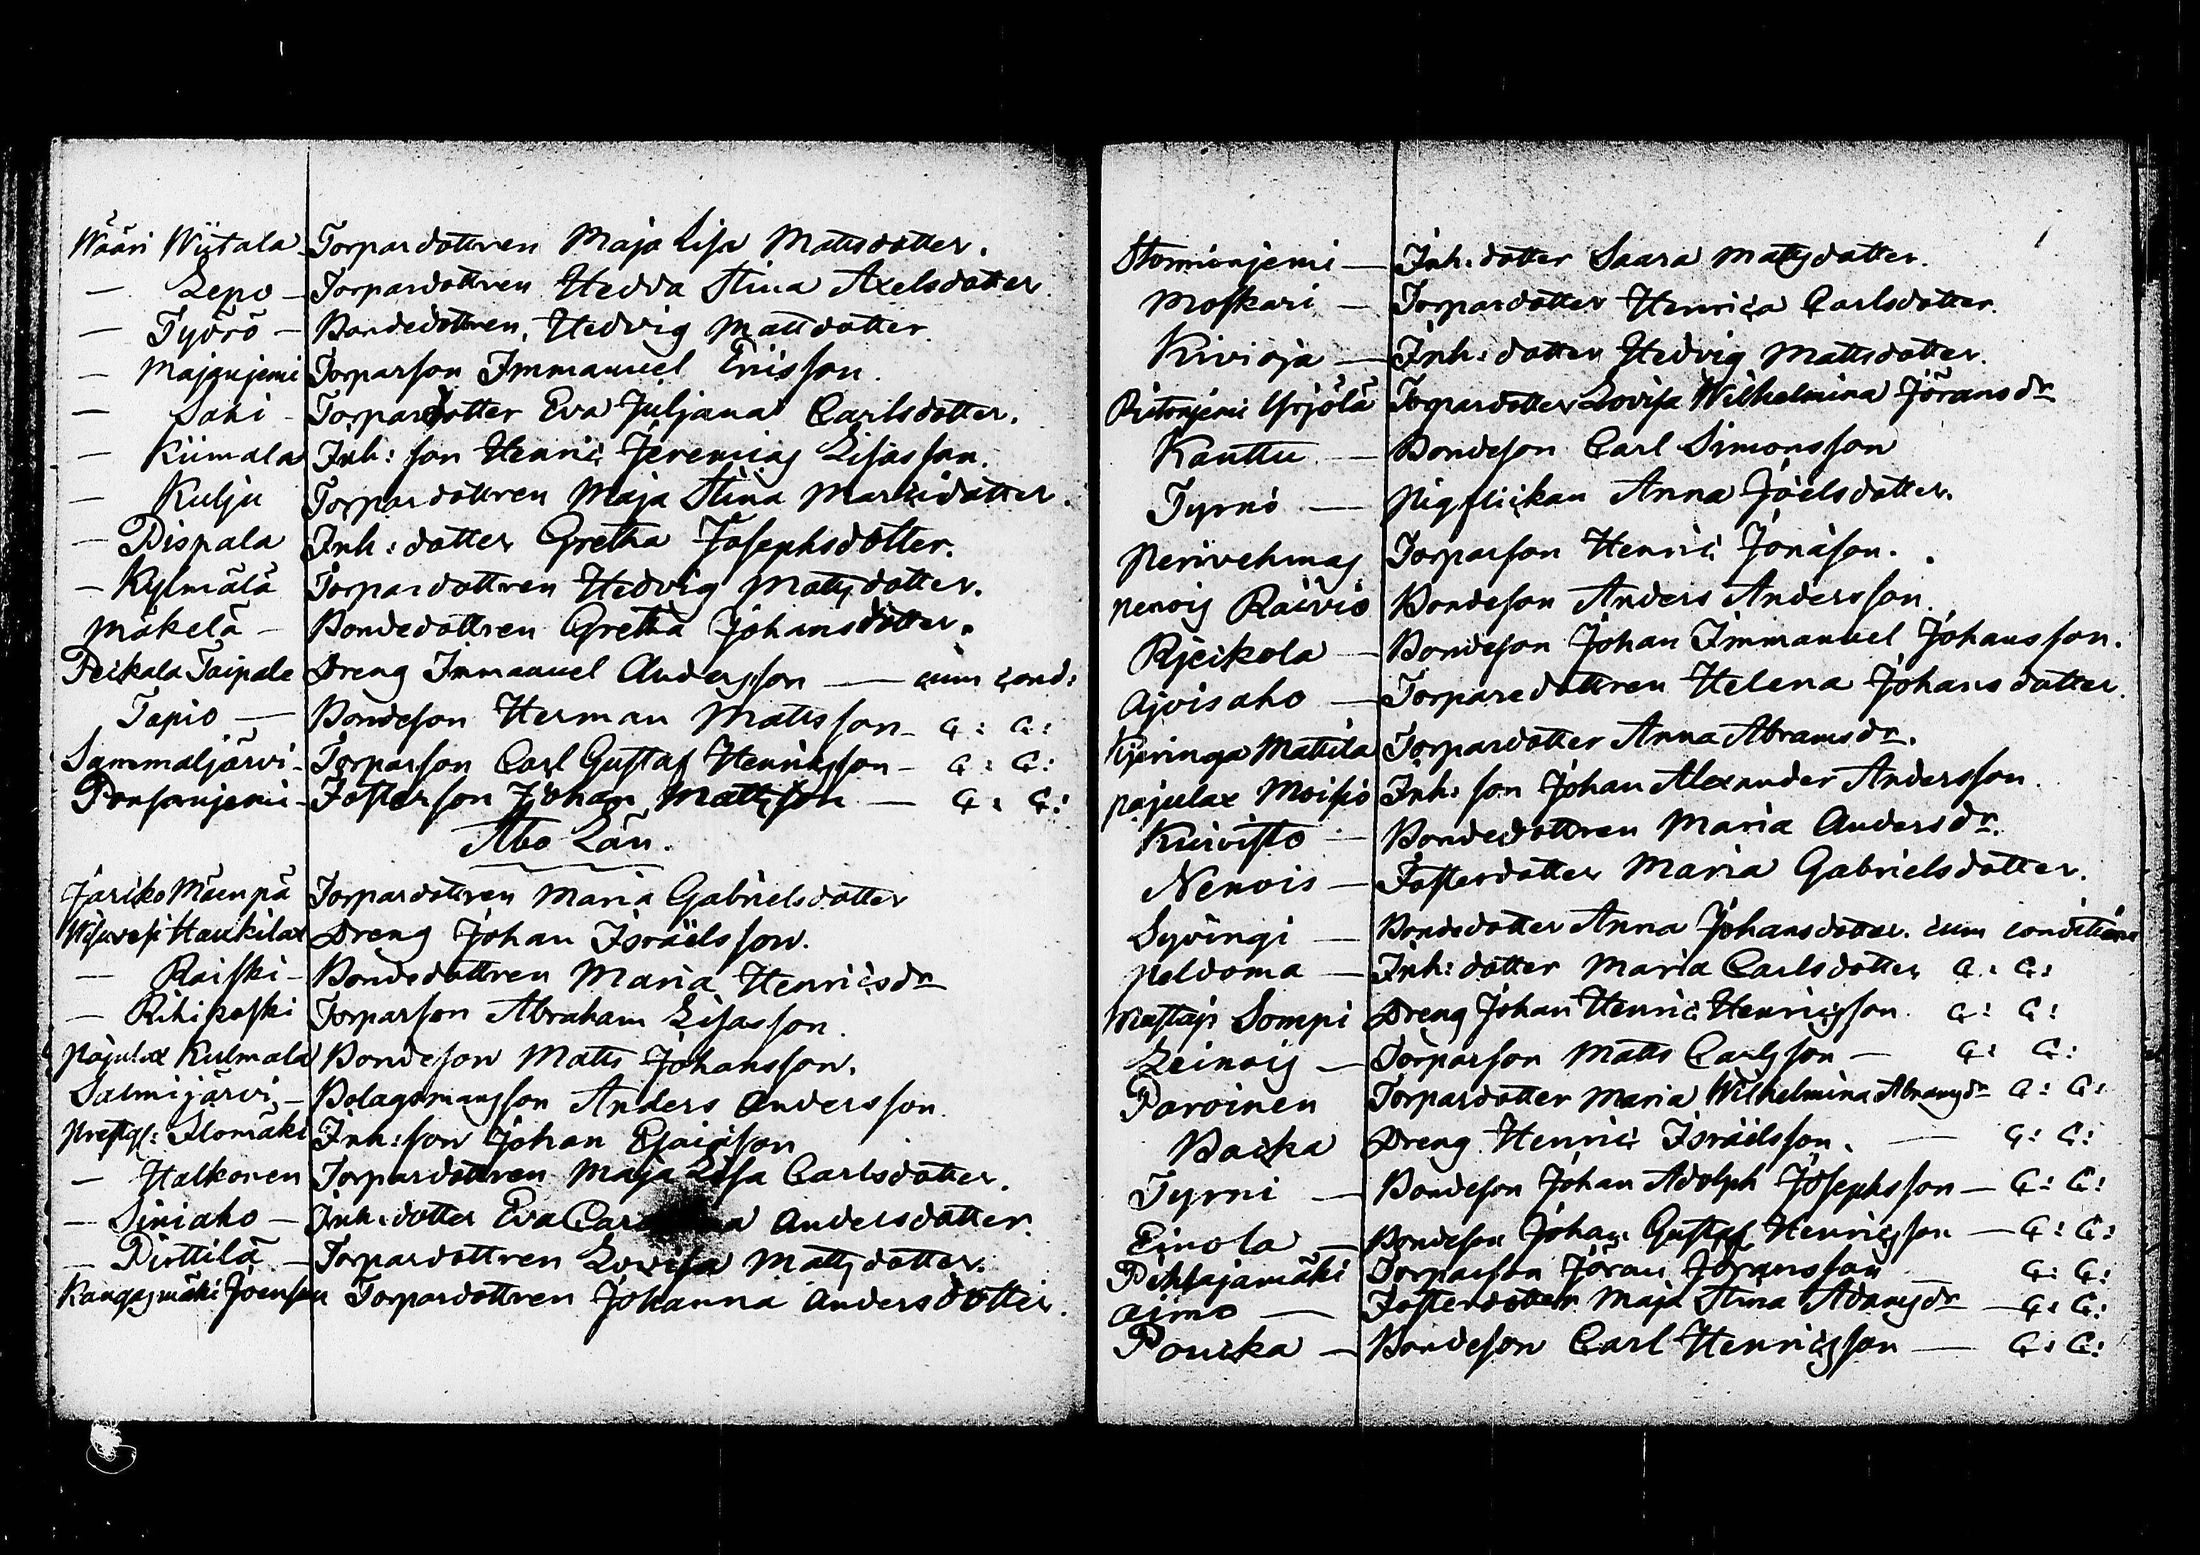 Wääri Wiitala – Torpardottren Maja Lisa Mattsdotter.
— Lepo – Torpardottren Hedda Stina Axelsdotter
— Työrö – Bondedottren Hedvig Mattsdotter.
— Majaniemi Torparson Immanuel Ericsson.
— Saki – Torpardotter Eva Juljana Carlsdotter.
— Kiimala Inh: son Henric Jeremias Lisasson.
— Kulju Torpardottren Maja Stina Marcidotter.
— Pispala Inh: dotter Gretha Josephsdotter.
— Kylmälä Torpardottren Hedvig Mattsdotter.
Mäkelä – Bondedottren Gretha Johansdotter.
Peikala Taipale Dreng Immanuel Andersson — cum cond:
Tapio — Bondeson Herman Mattsson – c: c:
Sammaljärvi – Torparson Carl Gustaf Henricsson – c: c:
Fosterson Johan Mattsson — c: c:
Åbo Län.
Järiko Mäenpä Torpardottren Maria Gabrielsdotter
Haukilax Dreng Johan Israëlsson.
— Raiski – Bondedottren Maria Henricsdr
— Rihikoski Torparson Abraham Lisasson.
Pajulax Kulmala Bondeson Matts Johansson.
Salmijärvi – Bolagsmansson Anders Andersson.
Prestg: Ilomäki Inh: son Johan Esaiasson
— Halkonen Torpardottren Maja Lisa Carlsdotter.
— Siniaho – Inh: dotter Eva Andersdotter.
— Pirttilä – Torpardottren Lovisa Mattsdotter.
Kangasmäki Joensuu Torpardottren Johanna Andersdotter.
Storminjemi — Inh: dotter Saara Mattsdotter.
Moskari — Torpardotter Henrica Carlsdotter.
Kivioja — Inh: dotter Hedvig Mattsdotter.
Yrjölä Torpardotter Lovisa Wilhelmina Jöransdr
Kauttu — Bondeson Carl Simonsson
Tyrnö — Pigflickan Anna Joelsdotter.
Torparson Henric Jonasson.
Raivio Bondeson Anders Andersson.
Kjeikola — Bondeson Johan Immanuel Johansson.
Ajvisaho — Torparedottren Helena Johansdotter.
Kjeringa Mattila Torpardotter Anna Abramsdr.
Pajulax Moisio Inh: son Johan Alexander Andersson.
Kuivisto — Bondedottren Maria Andersdr.
Nenois — Fosterdotter Maria Gabrielsdotter.
Syvingi — Bondedotter Anna Johansdotter. cum conditione
Peldoma — Inh: dotter Maria Carlsdotter c: c:
Sompi Dreng Johan Henric Henricsson. c: c:
Leinois — Torparson Matts Carlsson — c: c:
Paroinen Torpardotter Maria Wilhelmina Abramsdr c: c:
Backa Dreng Henric Israëlsson. — c: c:
Tyrni — Bondeson Johan Adolph Josephsson — c: c:
Einola — Bondeson Johan Gustaf Henricsson — c: c:
Pihlajamäki Torparson Jöran Jöransson c: c:
Aimo — Fosterdotter Maja Stina Adamsdr — c: c:
Poucka — Bondeson Carl Henricsson — c: c: